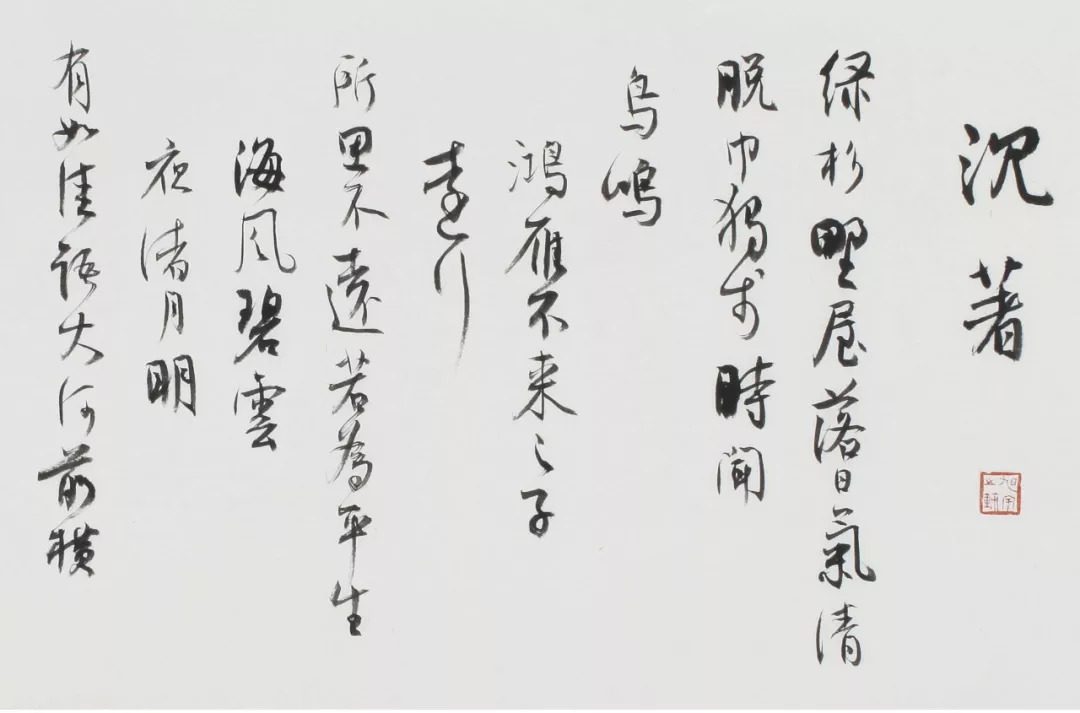 沉著
緑杉野屋落日氣清
脱巾獨步時聞
鳥鳴
鴻雁不来之子
遠行
所思不遠若為平生
海風碧雲
夜渚月明
有如佳語大河前横
旭宇之